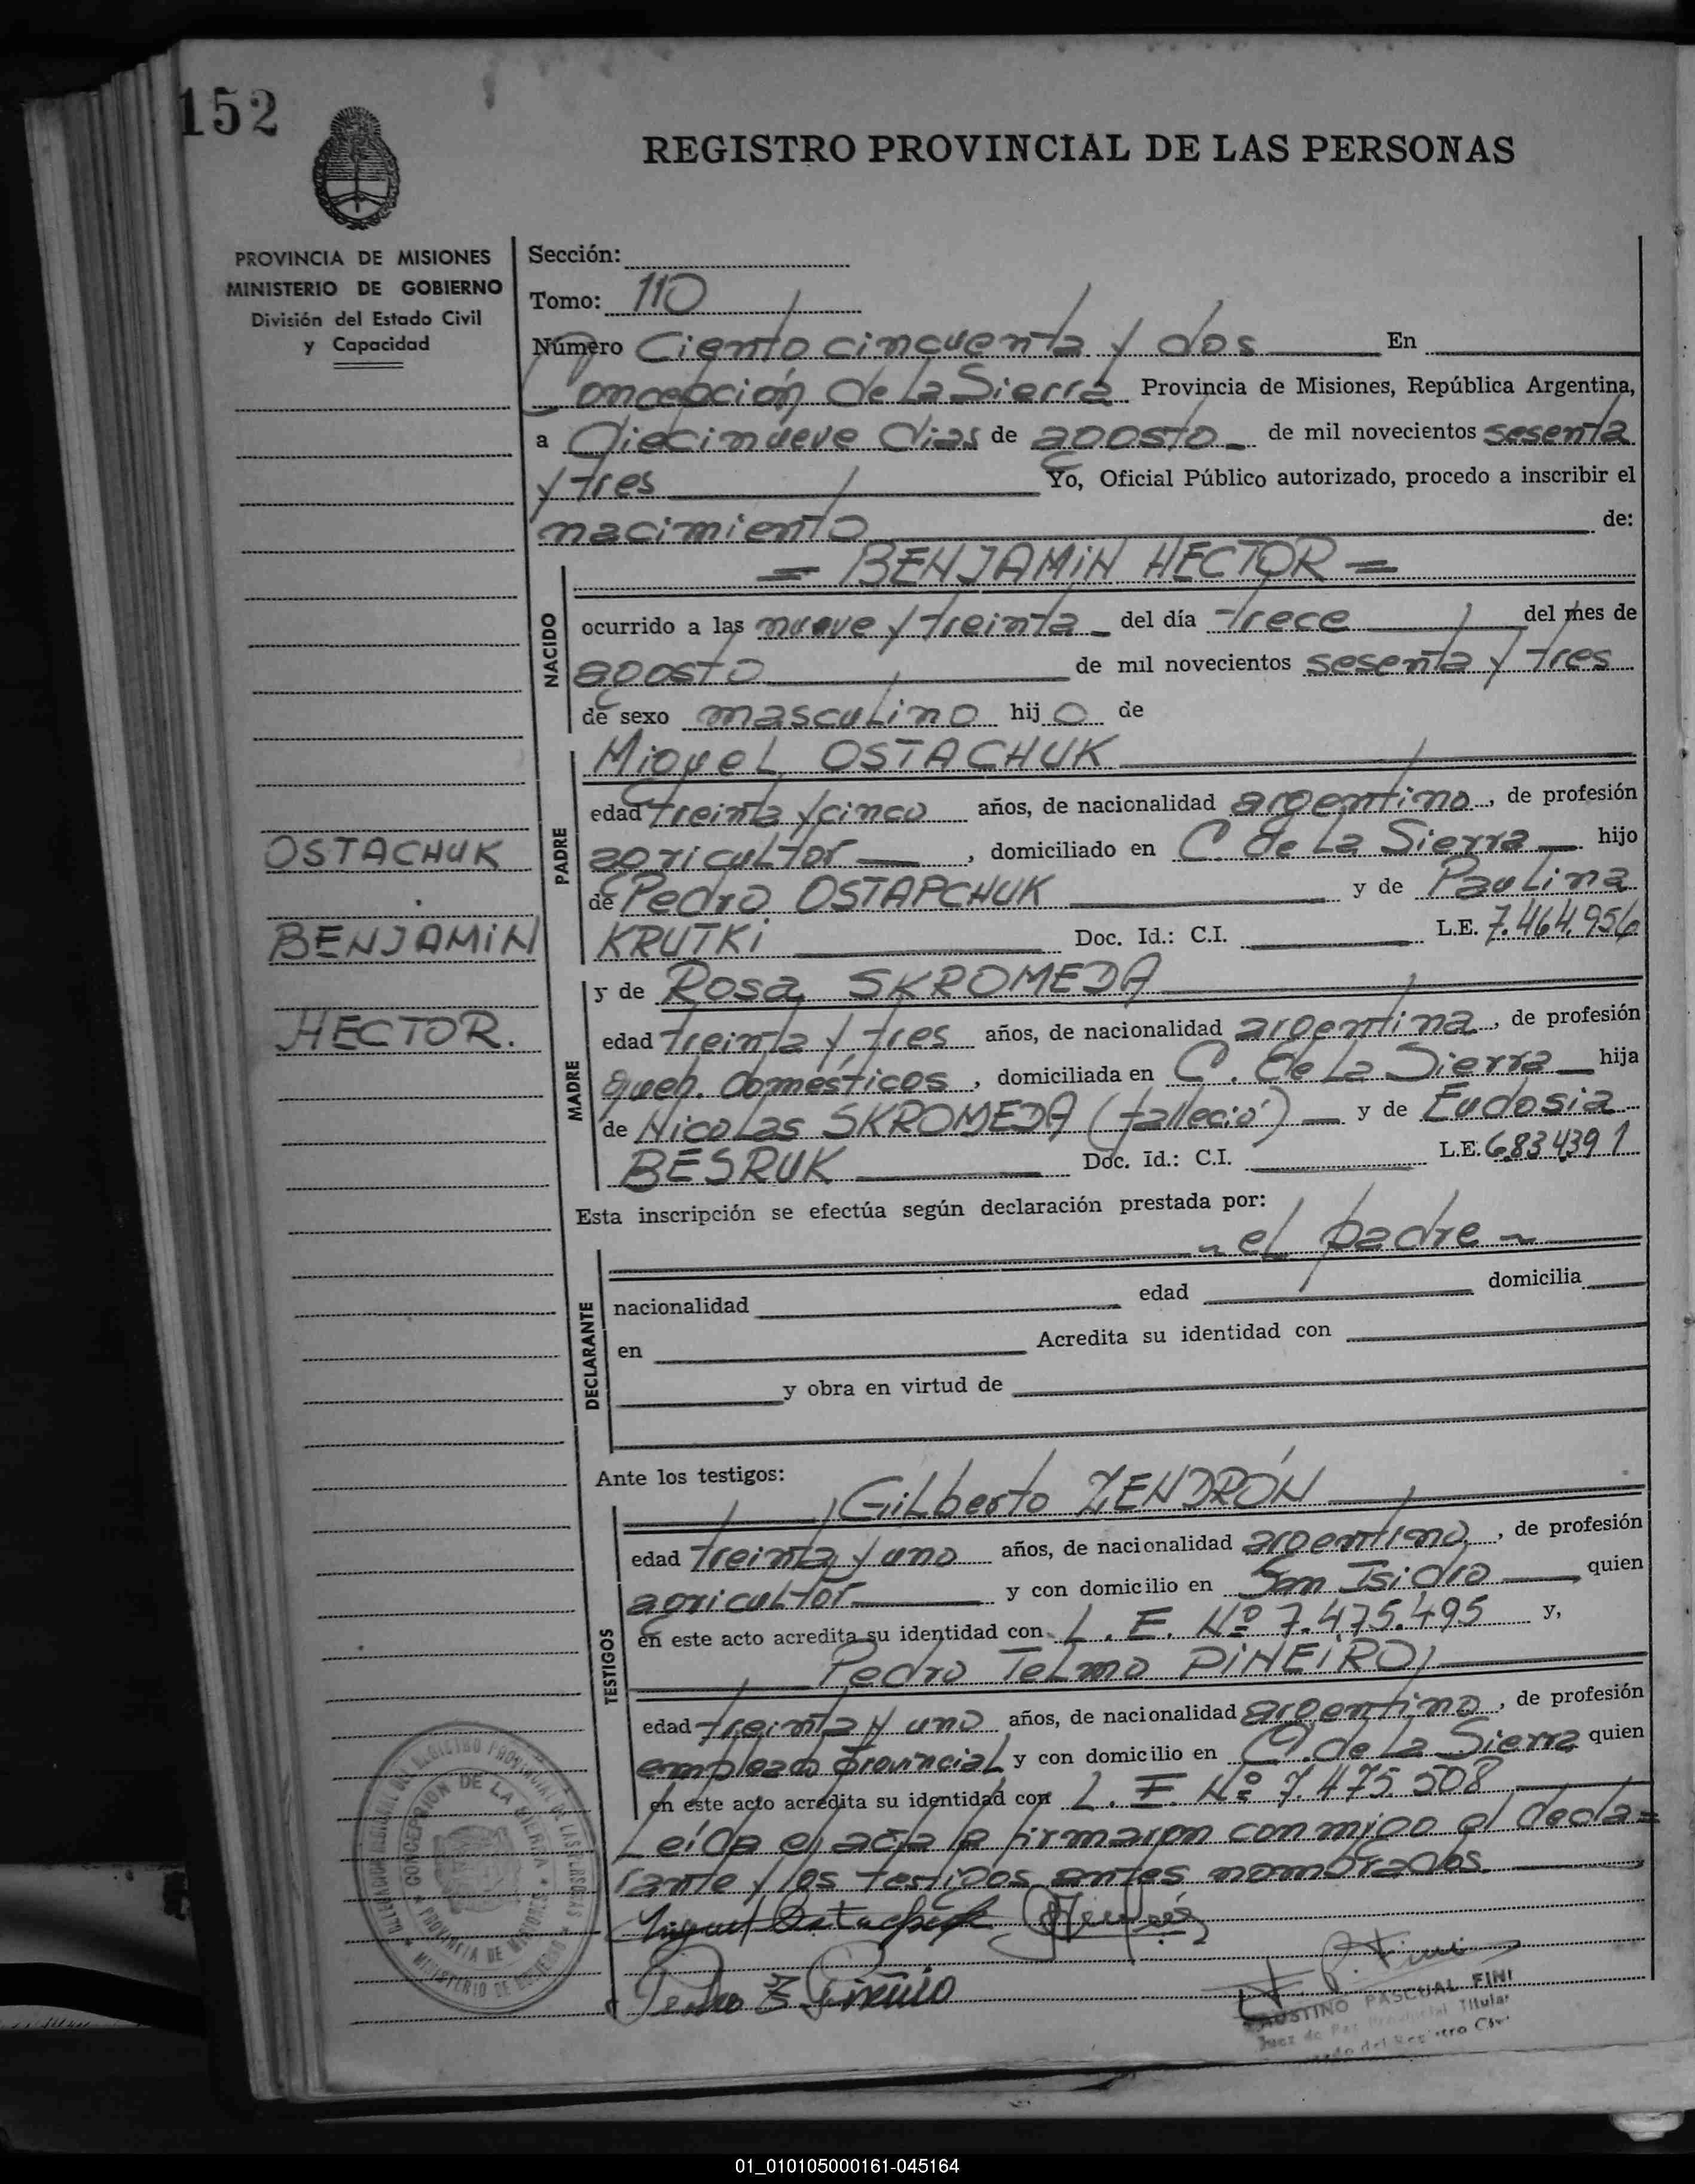 152
REGISTRO PROVINCIAL DE LAS PERSONAS
PROVINCIA DE MISIONES
MINISTERIO DE GOBIERNO
División del Estado Civil
y Capacidad
OSTACHUK
BENJAMiN
HECTOR.
Sección:
Tomo: 110
Número Ciento cincuenta y dos En
Concepción de La Sierra Provincia de Misiones, República Argentina,
a diecinueve dias de agosto de mil novecientos sesenta
y tres Yo, Oficial Público autorizado, procedo a inscribir el
nacimiento de:
= BENJAMiN HECTOR =
NACIDO
ocurrido a las nueve y treinta del día trece del mes de
agosto de mil novecientos sesenta y tres
de sexo masculino hij o de
PADRE
Miguel OSTACHUK
edad treinta y cinco años, de nacionalidad argentino, de profesión
agricultor, domiciliado en C. de La Sierra hijo
de Pedro OSTAPCHUK y de Paulina
KRUTKi Doc. Id.: C.I. L.E. 7.464.956
MADRE
y de Rosa SKROMEDA
edad treinta y tres años, de nacionalidad argentina, de profesión
queh. domésticos, domiciliada en C. de La Sierra hija
de Nicolas SKROMEDA (falleció) y de Eudosia
BESRUK Doc. Id.: C.I. L.E. 6834391
Esta inscripción se efectúa según declaración prestada por:
el padre
DECLARANTE
nacionalidad edad domicilia
en Acredita su identidad con
y obra en virtud de
Ante los testigos:
TESTIGOS
Gilberto ZENDRÓN
edad treinta y uno años, de nacionalidad argentino, de profesión
agricultor y con domicilio en San Isidro quien
en este acto acredita su identidad con L. E. Nº 7.475.495 y,
Pedro Telmo PiÑEiRO,
edad treinta y uno años, de nacionalidad argentino, de profesión
empleado Provincial y con domicilio en C. de La Sierra quien
en este acto acredita su identidad con L. E. Nº 7.475.508
Leída el acta la firmaron conmigo el decla=
rante y los testigos antes nombrados.
Miguel Ostachuk
DELEGACION REGIONAL DEL REGISTRO PROVINCIAL DE LAS PERSONAS
CONCEPCION DE LA SIERRA
PROVINCIA DE MISIONES
MINISTERIO DE GOBIERNO
PASCUAL FINI
Juez de Paz Provincial Titular
del Registro Civil
01_010105000161-045164